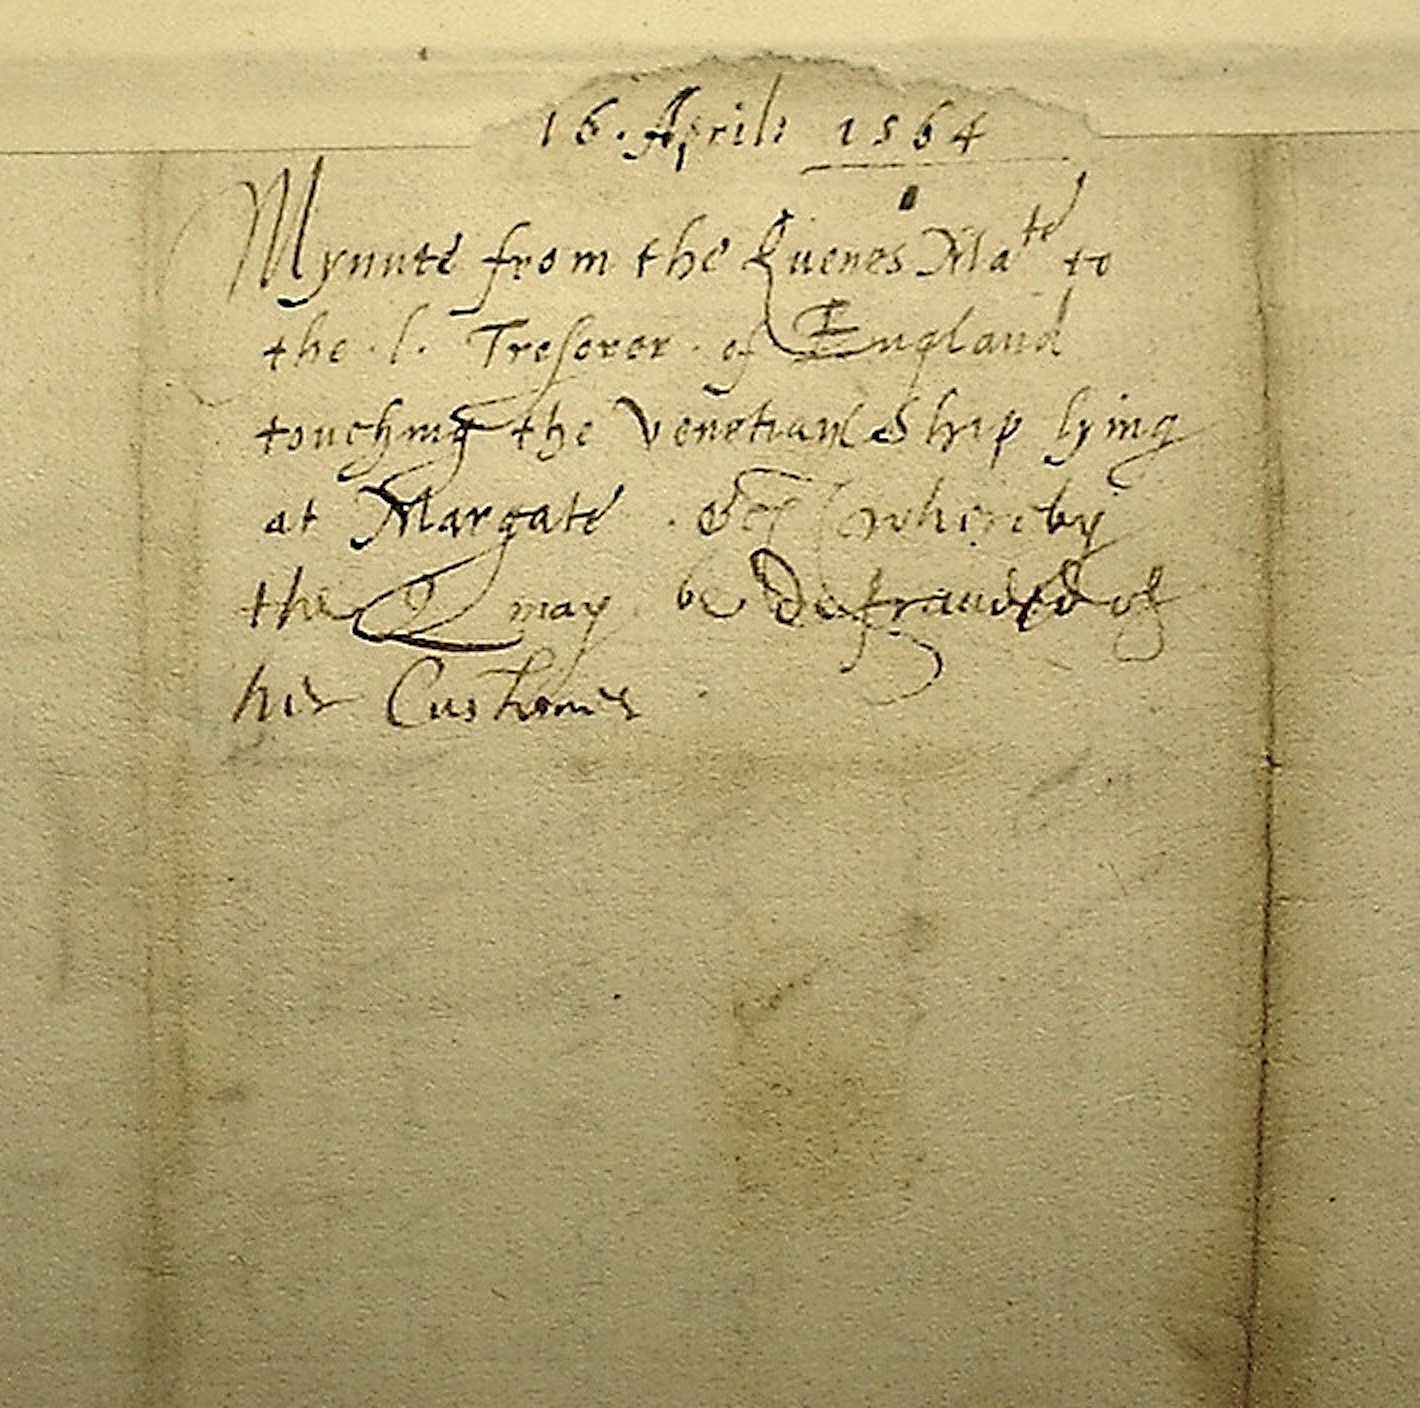 16. Aprilis 1564
Mynute from the Quenes Ma^te to
the .l. Tresorer . of England
touching the Venetian Ship lying
at Margate . &c whereby
the Q may be Defrauded of
her Customes